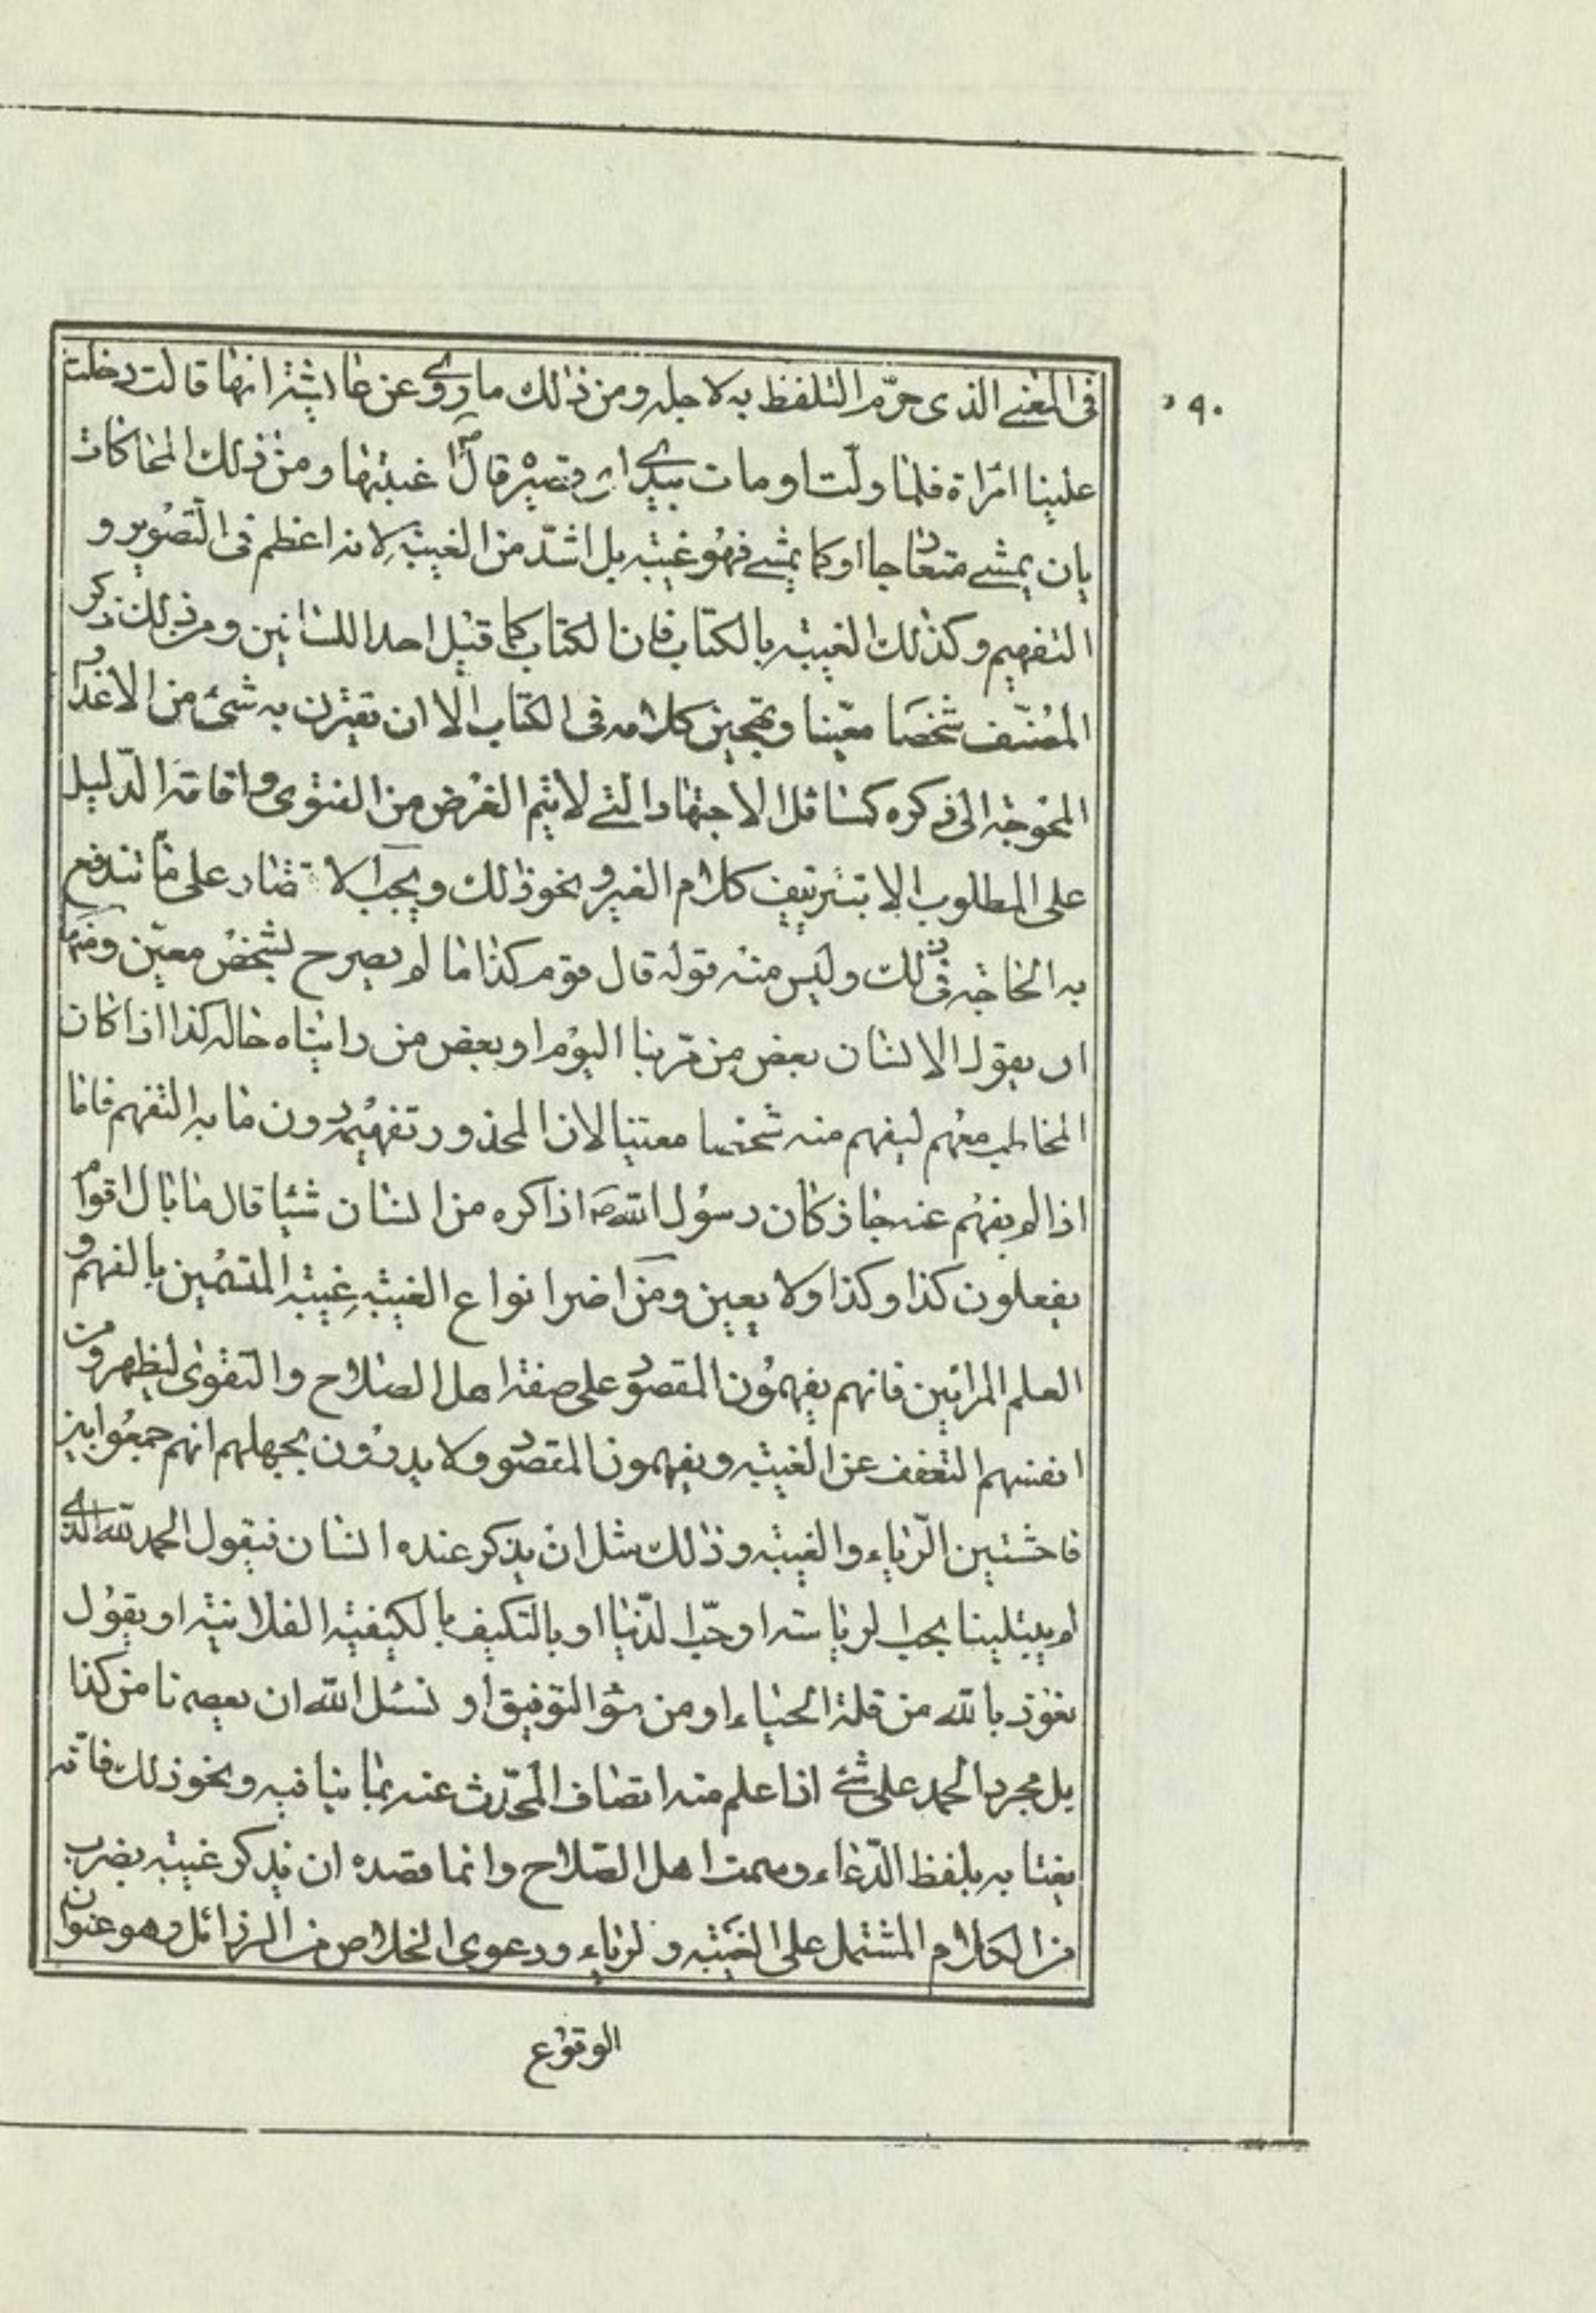 ٢٩٠
فى المعنى الذى حرّم التلفظ به لاجله ومن ذلك ما روى عن عايشة انها قالت دخلت
علينا امراة فلما ولّت اومات بيدى اى قصيرة قال ص اغتبتها ومن ذلك المحاكات
بان يمشى متعارجا او كما يمشى فهو غيبة بل اشدّ من الغيبة لانه اعظم فى التصوير و
التفهيم وكذلك الغيبة بالكتاب فان الكتاب كما قيل احد اللسانين ومن ذلك ذكر
المصنّف شخصا معيّنا وتهجين كلامه فى الكتاب الا ان يقترن به شئ من الاعذار
المحوجة الى ذكره كمسائل الاجتهاد التى لا يتم الغرض من الفتوى واقامة الدّليل
على المطلوب الا بتزييف كلام الغير ونحو ذلك ويجب الاقتصار على ما تندفع
به الحاجة فى ذلك وليس منه قوله قال قوم كذا ما لم يصرح بشخص معيّن ومنها
ان يقول الانسان بعض من مرّ بنا اليوم او بعض من رايناه حاله كذا اذا كان
المخاطب معهم ليفهم منه شخصا معينا لان المحذور تفهيمه دون ما به التفهم فاما
اذا لم يفهم عنه جاز كان رسول الله ص اذا كره من انسان شيئا قال ما بال اقوام
يفعلون كذا وكذا ولا يعين ومن اضر انواع الغيبة غيبة المتسمين بالفهم و
العلم المرائين فانهم يفهمون المقصود على صفة اهل الصلاح والتقوى ليظهروا من
انفسهم التعفف عن الغيبة ويفهمون المقصود ولا يدرون بجهلهم انهم جمعوا بين
فاحشتين الرّياء والغيبة وذلك مثل ان يذكر عنده انسان فيقول الحمد لله الذى
لم يبتلينا بحب الرياسة او حبّ الدّنيا او بالتكيف بالكيفية الفلانية او يقول
نعوذ بالله من قلة الحياء او من سوء التوفيق او نسئل الله ان يعصمنا من كذا
بل مجرد الحمد على شئ اذا علم منه اتصاف المحدّث عنه بما ينافيه ونحو ذلك فانّه
يغتابه بلفظ الدّعاء وسمت اهل الصّلاح وانما قصده ان يذكر غيبة بضرب
من الكلام المشتمل على الغيبة والرياء ودعوى الخلاص من الرذائل وهو عنوان
الوقوع